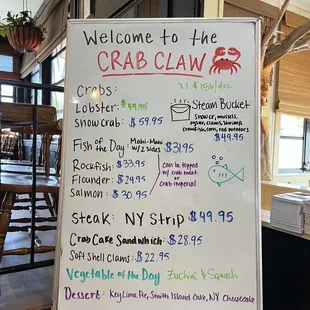 Welcome to the
CRAB CLAW
Crabs:
Lobster: $49.95
Snow crab: $59.95
Steam Bucket
Snow cr, mussels,
oyster, clams, shrimp,
crawfish, corn, red potatoes
$49.95
Fish of the Day: Mahi-Mahi w/ 2 sides $31.95
Rockfish: $33.95
Flounder: $29.95
Salmon: $30.95
Can be topped
w/ crab meat
or
Crab imperial
Steak: NY Strip $49.95
Crab Cake Sandwhich: $28.95
Soft Shell Clams: $22.95
Vegetable of the Day Zuchini & Squash
Dessert: Key Lime Pie, Smith Island Cake, NY Cheesecake